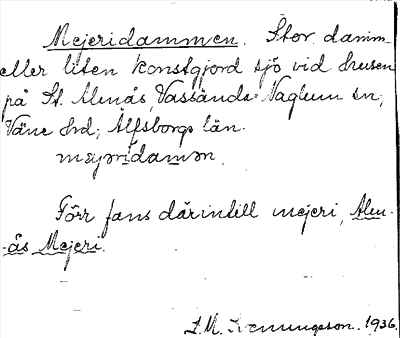 Mejeridammen. Stor damm
eller liten konstgjord sjö vid husen
på St. Alenäs, Vassända-Naglum sn,
Väne hd, Älfsborgs län.
mejəridamən.
Förr fans därintill mejeri, Alen-
-äs Mejeri.
1936.